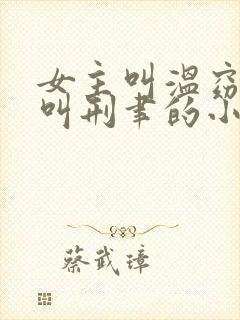 女主叫温窈
叫荆聿的小
蔡武璋